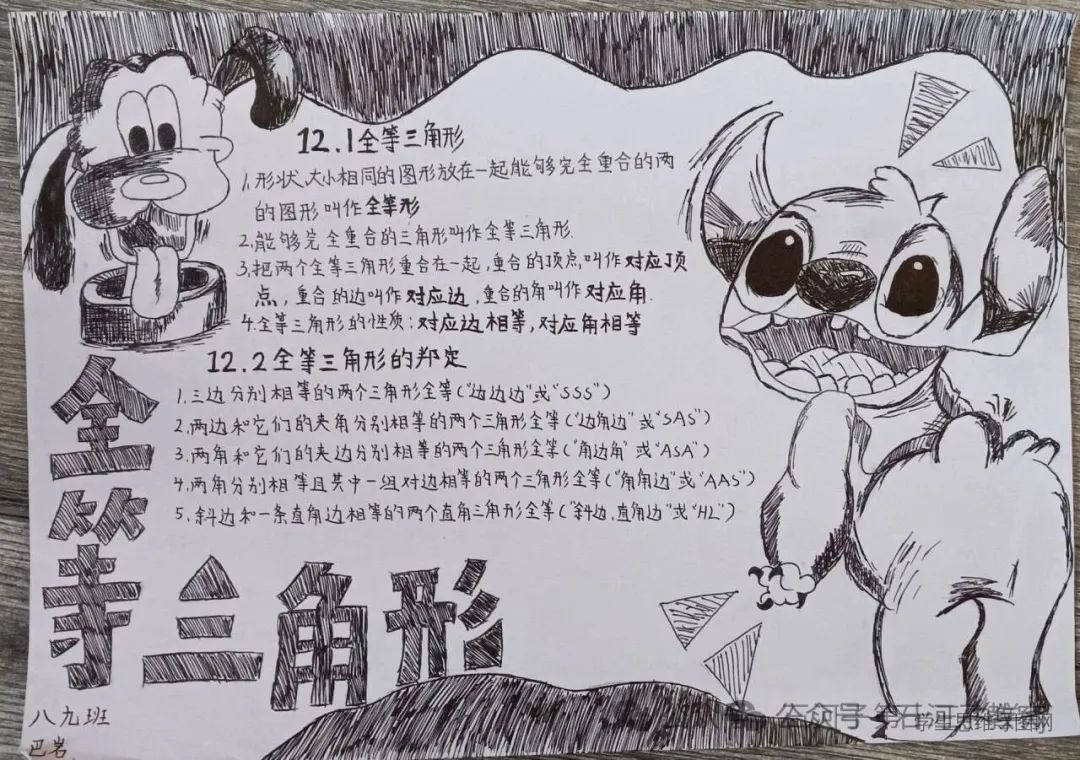 12.1全等三角形
1.形状、大小相同的图形放在一起能够完全重合的两
的图形叫作全等形
2.能够完全重合的三角形叫作全等三角形.
3.把两个全等三角形重合在一起,重合的顶点,叫作对应顶
点,重合的边叫作对应边,重合的角叫作对应角.
4.全等三角形的性质:对应边相等,对应角相等
12.2全等三角形的判定
1.三边分别相等的两个三角形全等("边边边"或"SSS")
2.两边和它们的夹角分别相等的两个三角形全等("边角边"或"SAS")
3.两角和它们的夹边分别相等的两个三角形全等("角边角"或"ASA")
4.两角分别相等且其中一组对边相等的两个三角形全等("角角边"或"AAS")
5.斜边和一条直角边相等的两个直角三角形全等("斜边,直角边"或"HL")
全等三角形
八九班
巴岩
公众号
学生思维导图网